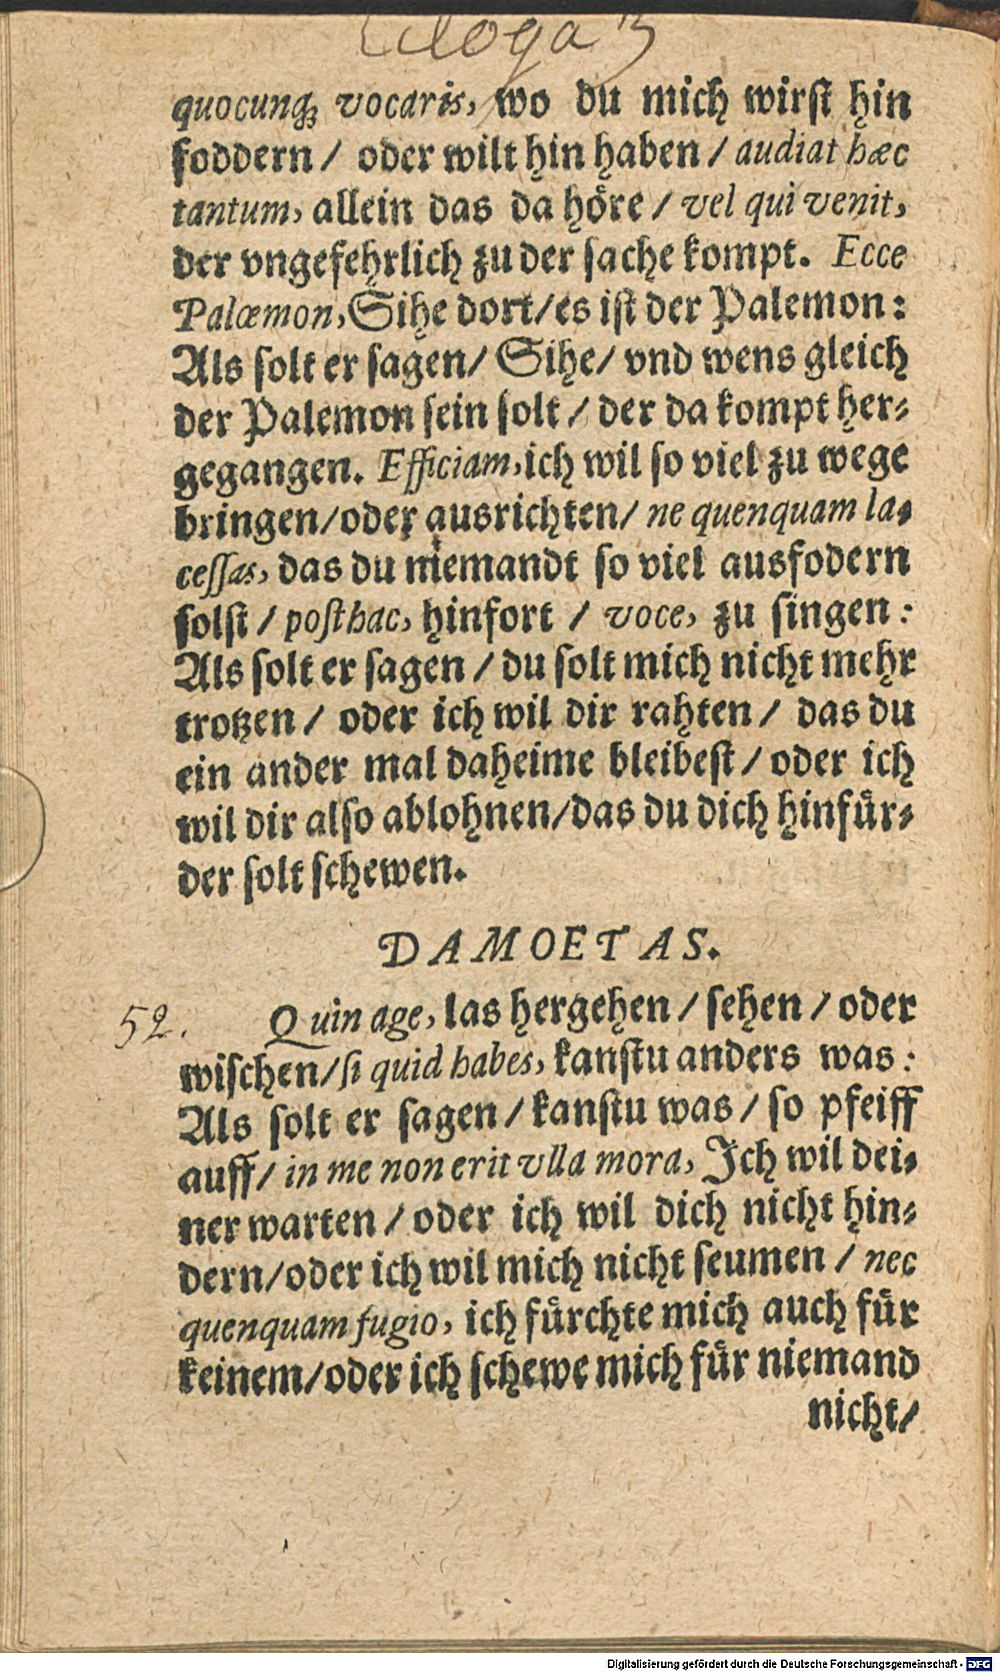 Ecloga 3
quocunq; vocaris, wo du mich wirst hin
foddern / oder wilt hin haben / audiat hæc
tantum, allein das da höre / vel qui venit,
der vngefehrlich zu der sache kompt. Ecce
Palæmon, Sihe dort/es ist der Palemon:
Als solt er sagen/ Sihe/ vnd wens gleich
der Palemon sein solt / der da kompt her-
gegangen. Efficiam, ich wil so viel zu wege
bringen/oder ausrichten/ ne quenquam la-
cessas, das du niemandt so viel ausfodern
solst / posthac, hinfort / voce, zu singen:
Als solt er sagen / du solt mich nicht mehr
trotzen / oder ich wil dir rahten / das du
ein ander mal daheime bleibest / oder ich
wil dir also ablohnen/das du dich hinfür-
der solt schewen.
DAMOETAS.
52. Quin age, las hergehen / sehen / oder
wischen/si quid habes, kanstu anders was:
Als solt er sagen / kanstu was / so pfeiff
auff/ in me non erit vlla mora, Ich wil dei-
ner warten / oder ich wil dich nicht hin-
dern/oder ich wil mich nicht seumen / nec
quenquam fugio, ich fürchte mich auch für
keinem/oder ich schewe mich für niemand
nicht/
Digitalisierung gefördert durch die Deutsche Forschungsgemeinschaft - DFG